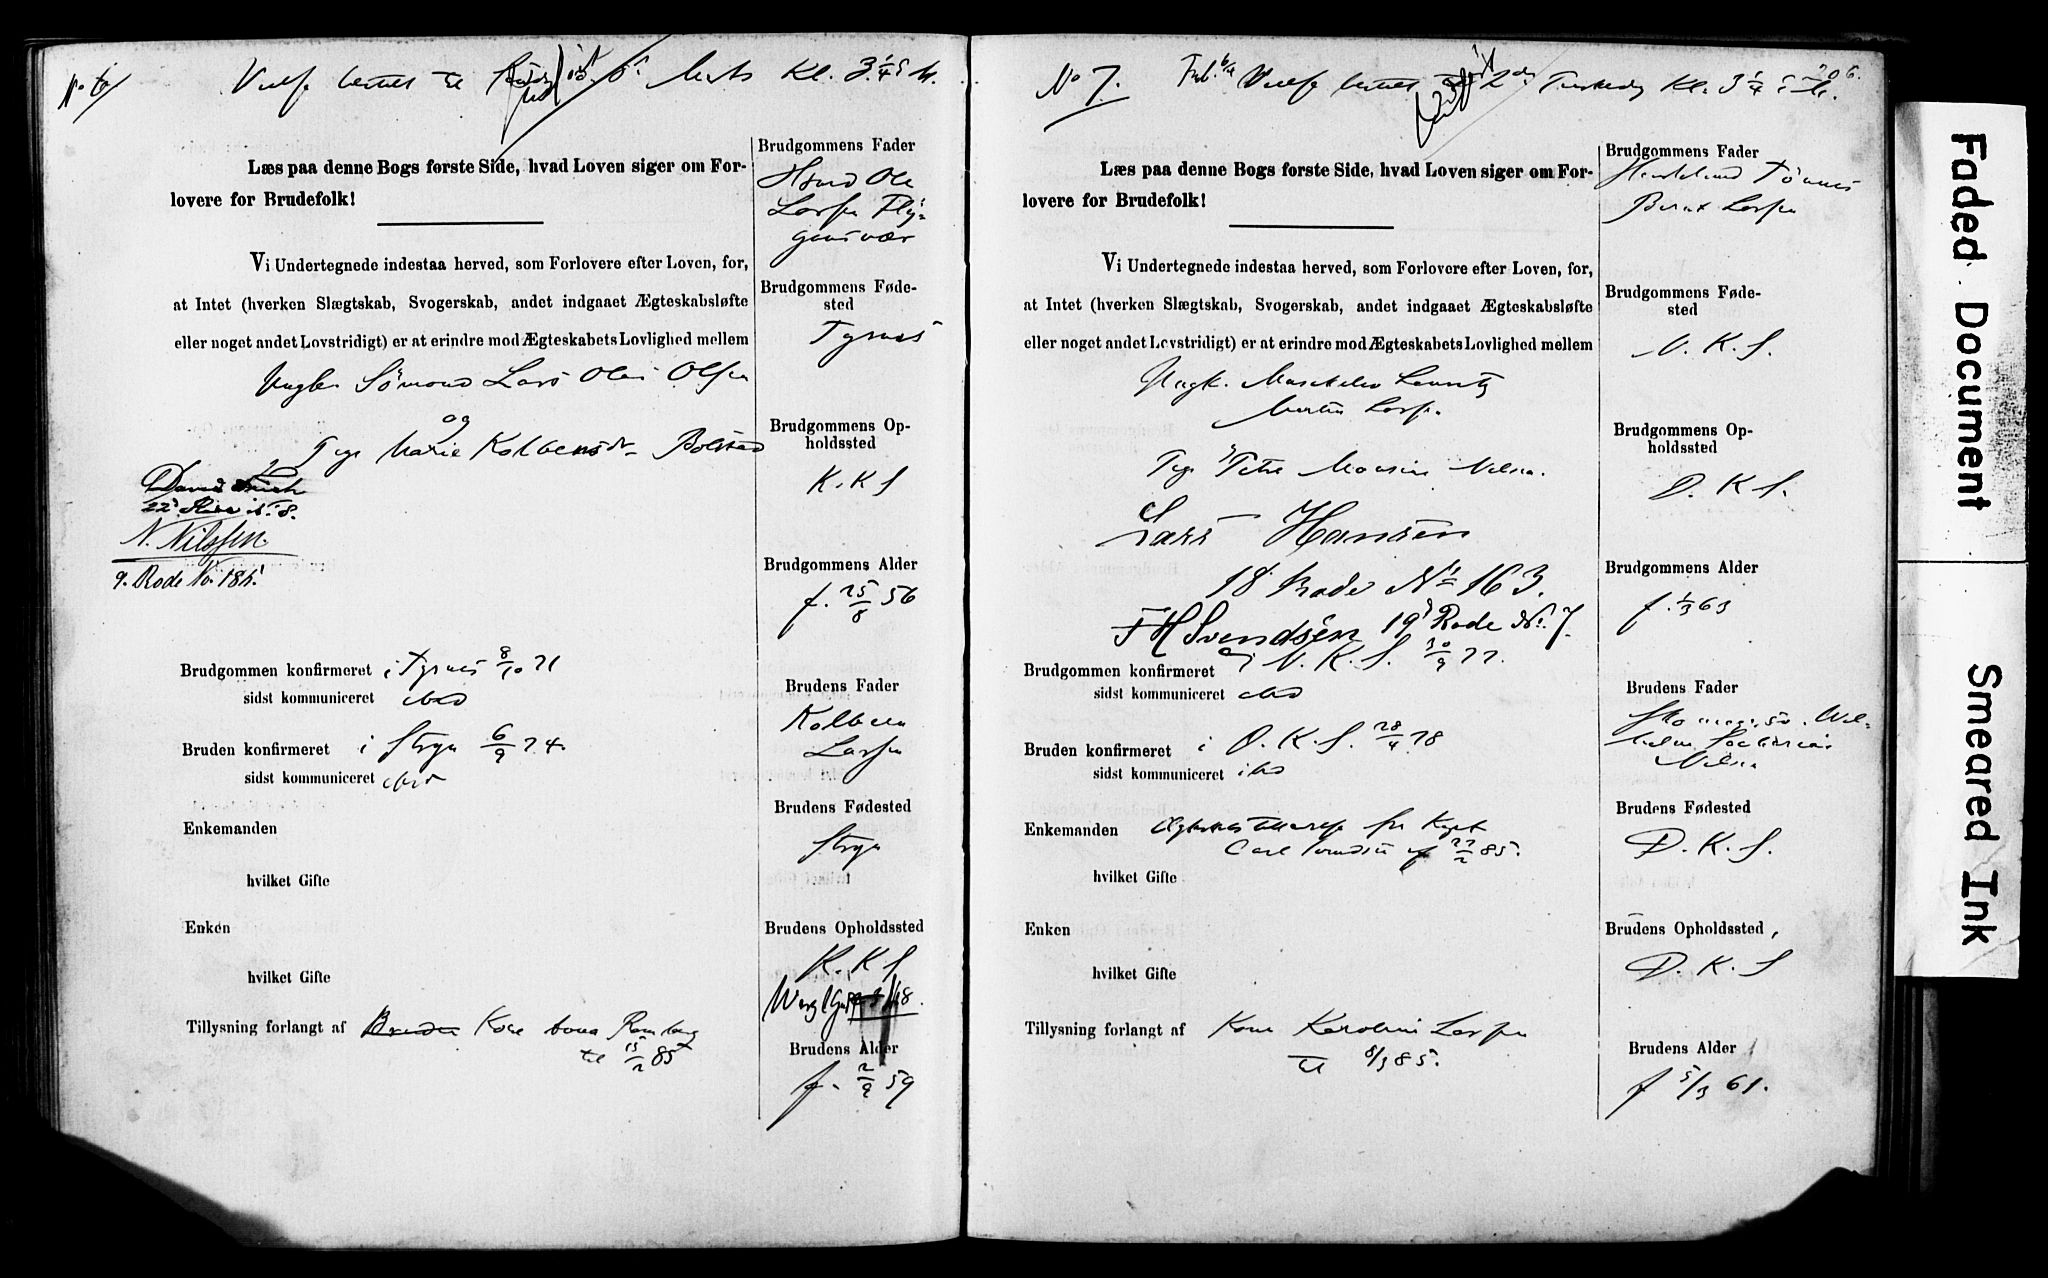 No 6
Kl. 3 1/4
Læs paa denne Bogs første Side, hvad Loven siger om For-
lovere for Brudefolk!
Vi Undertegnede indestaa herved, som Forlovere efter Loven, for,
at Intet (hverken Slægtskab, Svogerskab, andet indgaaet Ægteskabsløfte
eller noget andet Lovstridigt) er at erindre mod Ægteskabets Lovlighed mellem
Lars Olai Olsen
og
Marie Kolbensdtr Bolstad
N. Nilssen.
9. Rode No 18
Brudgommen konfirmeret i Tysnes 8/10 71
sidst kommuniceret ibid
Bruden konfirmeret i Stryn 6/9 74
sidst kommuniceret ibid
Enkemanden
hvilket Gifte
Enken
hvilket Gifte
Tillysning forlangt af Bruden Kone
til 15/2 85
Brudgommens Fader
Ole
Larsen
Brudgommens Føde-
sted
Tysnes
Brudgommens Op-
holdssted
K.K.S
Brudgommens Alder
f. 25/8 56
Brudens Fader
Kolben
Larsen
Brudens Fødested
Stryn
Brudens Opholdssted
K.K.S
Brudens Alder
f. 2/9 59
206.
No 7.
Kl. 3 1/4
Læs paa denne Bogs første Side, hvad Loven siger om For-
lovere for Brudefolk!
Vi Undertegnede indestaa herved, som Forlovere efter Loven, for,
at Intet (hverken Slægtskab, Svogerskab, andet indgaaet Ægteskabsløfte
eller noget andet Lovstridigt) er at erindre mod Ægteskabets Lovlighed mellem
Ungk. Lauritz
Martin Larsen
og
Pige Petra Nilsen.
Lars Hansen
18 Rode No 163.
F H Svendsen 19d Rode No. 7.
Brudgommen konfirmeret i N.K.S. 30/9 77.
sidst kommuniceret ibid
Bruden konfirmeret i D.K.S. 28/4 78
sidst kommuniceret ibid
Enkemanden
Carl 27/2 85.
hvilket Gifte
Enken
hvilket Gifte
Tillysning forlangt af Kone Karoline Larsen
til 8/3 85.
Brudgommens Fader
Tønnes
Bernt Larsen
Brudgommens Føde-
sted
N.K.S.
Brudgommens Op-
holdssted
D.K.S.
Brudgommens Alder
f. 1/3 63
Brudens Fader
Skomagersv. Wil-
helm
Nilsen
Brudens Fødested
D.K.S.
Brudens Opholdssted
D.K.S
Brudens Alder
f 5/3 61.
Faded Document
Smeared Ink